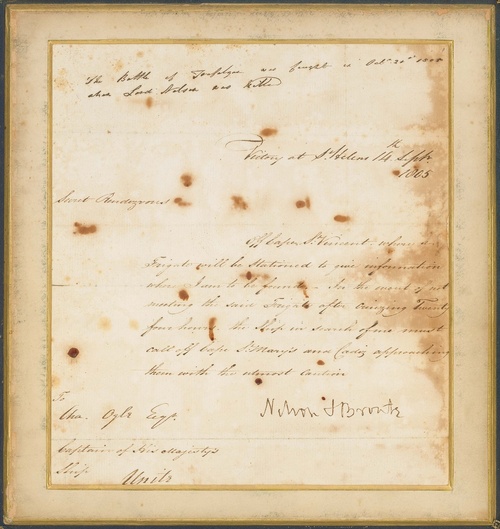 The Battle of Trafalgar was fought in Octr 21st 1805
when Lord Nelson was killed
Victory at St Helens 14th Septr
1805
Secret Rendezvous
Off Cape St Vincent, where a
Frigate will be stationed to give information
where I am to be found. In the event of not
meeting the said Frigate after cruizing Twenty
four hours the Ship in search of me must
call off Cape St Marys and Cadiz approaching
them with the utmost Caution
Nelson & Bronte
To
Cha. Ogle Esqr.
Captain of His Majesty's
Ship Unité